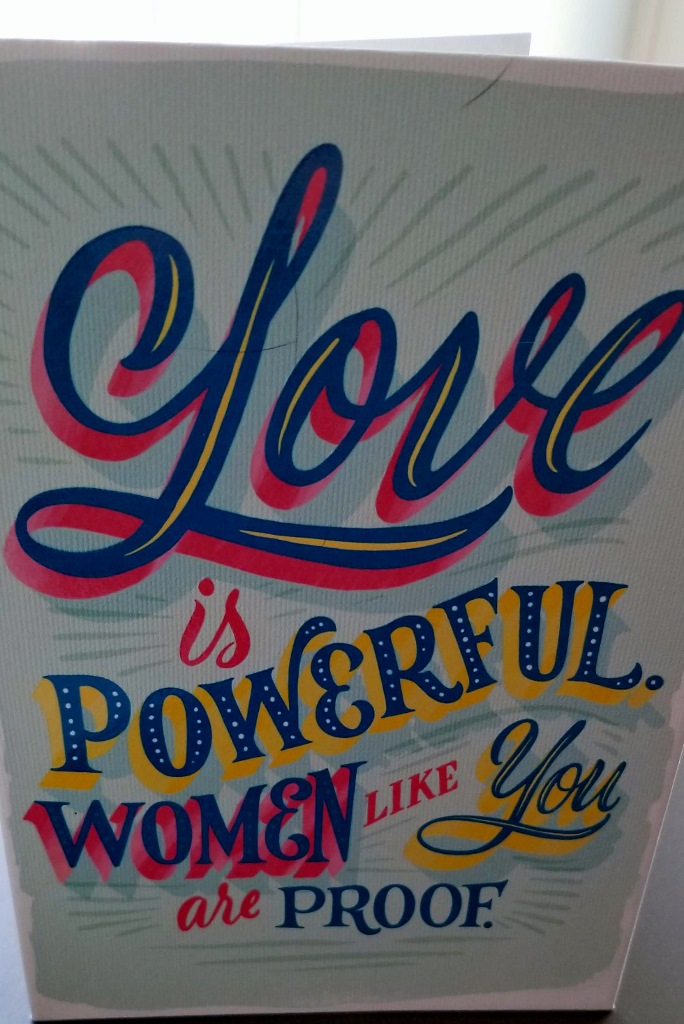 Love
is
POWERFUL.
WOMEN LIKE You
are PROOF.